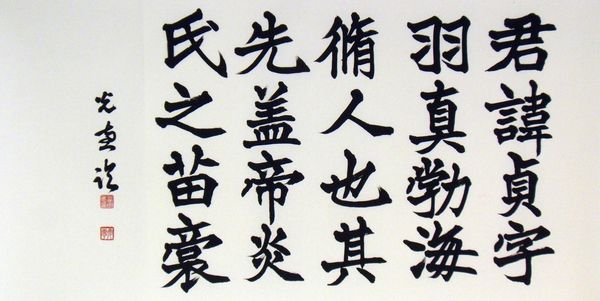 君諱貞字
羽真勃海
脩人也其
先盖帝炎
氏之苗裔
光惠临